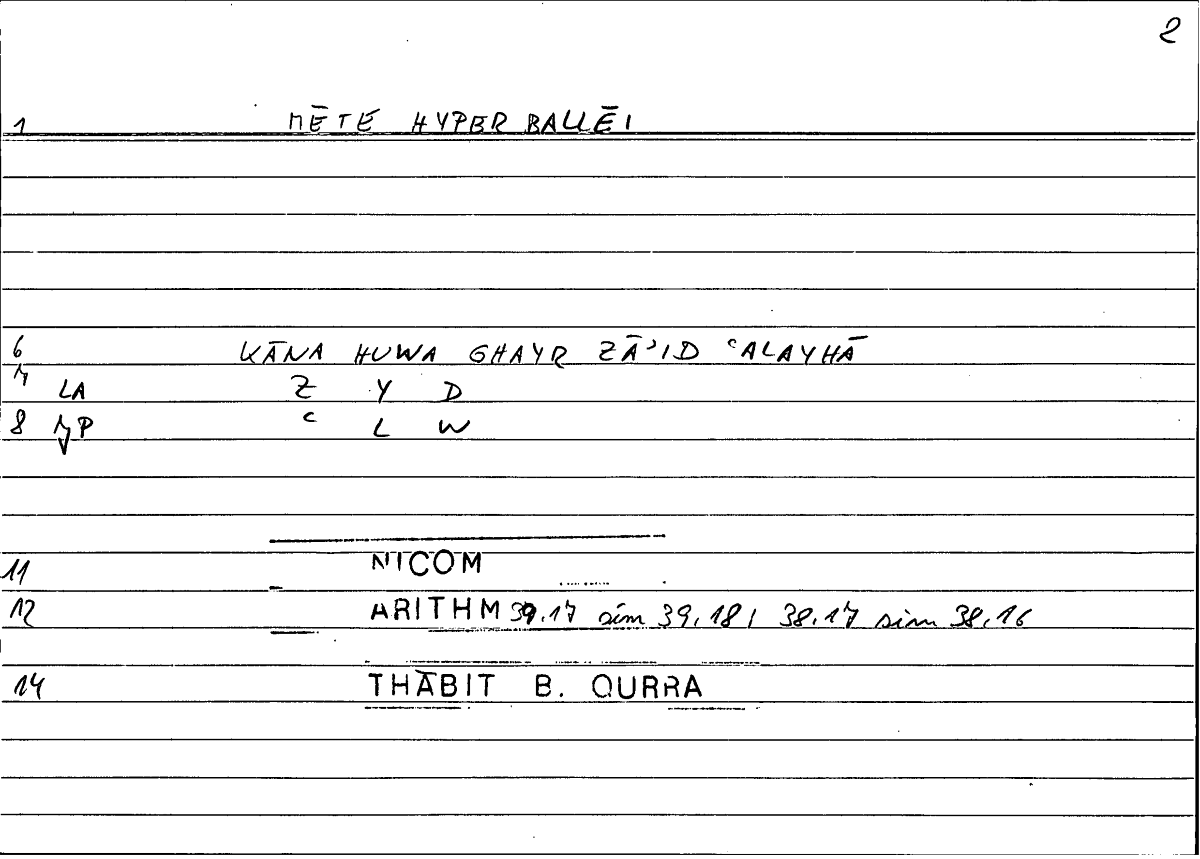 2
1 MĒTE HYPERBALLĒI
6 KĀNA HUWA GHAYR ZĀʾID ʿALAYHĀ
7 LA Z Y D
8 JP ʿ L W
11 NICOM
12 ARITHM 39.17 sim 39.18; 38.17 sim 38.16
14 THĀBIT B. QURRA